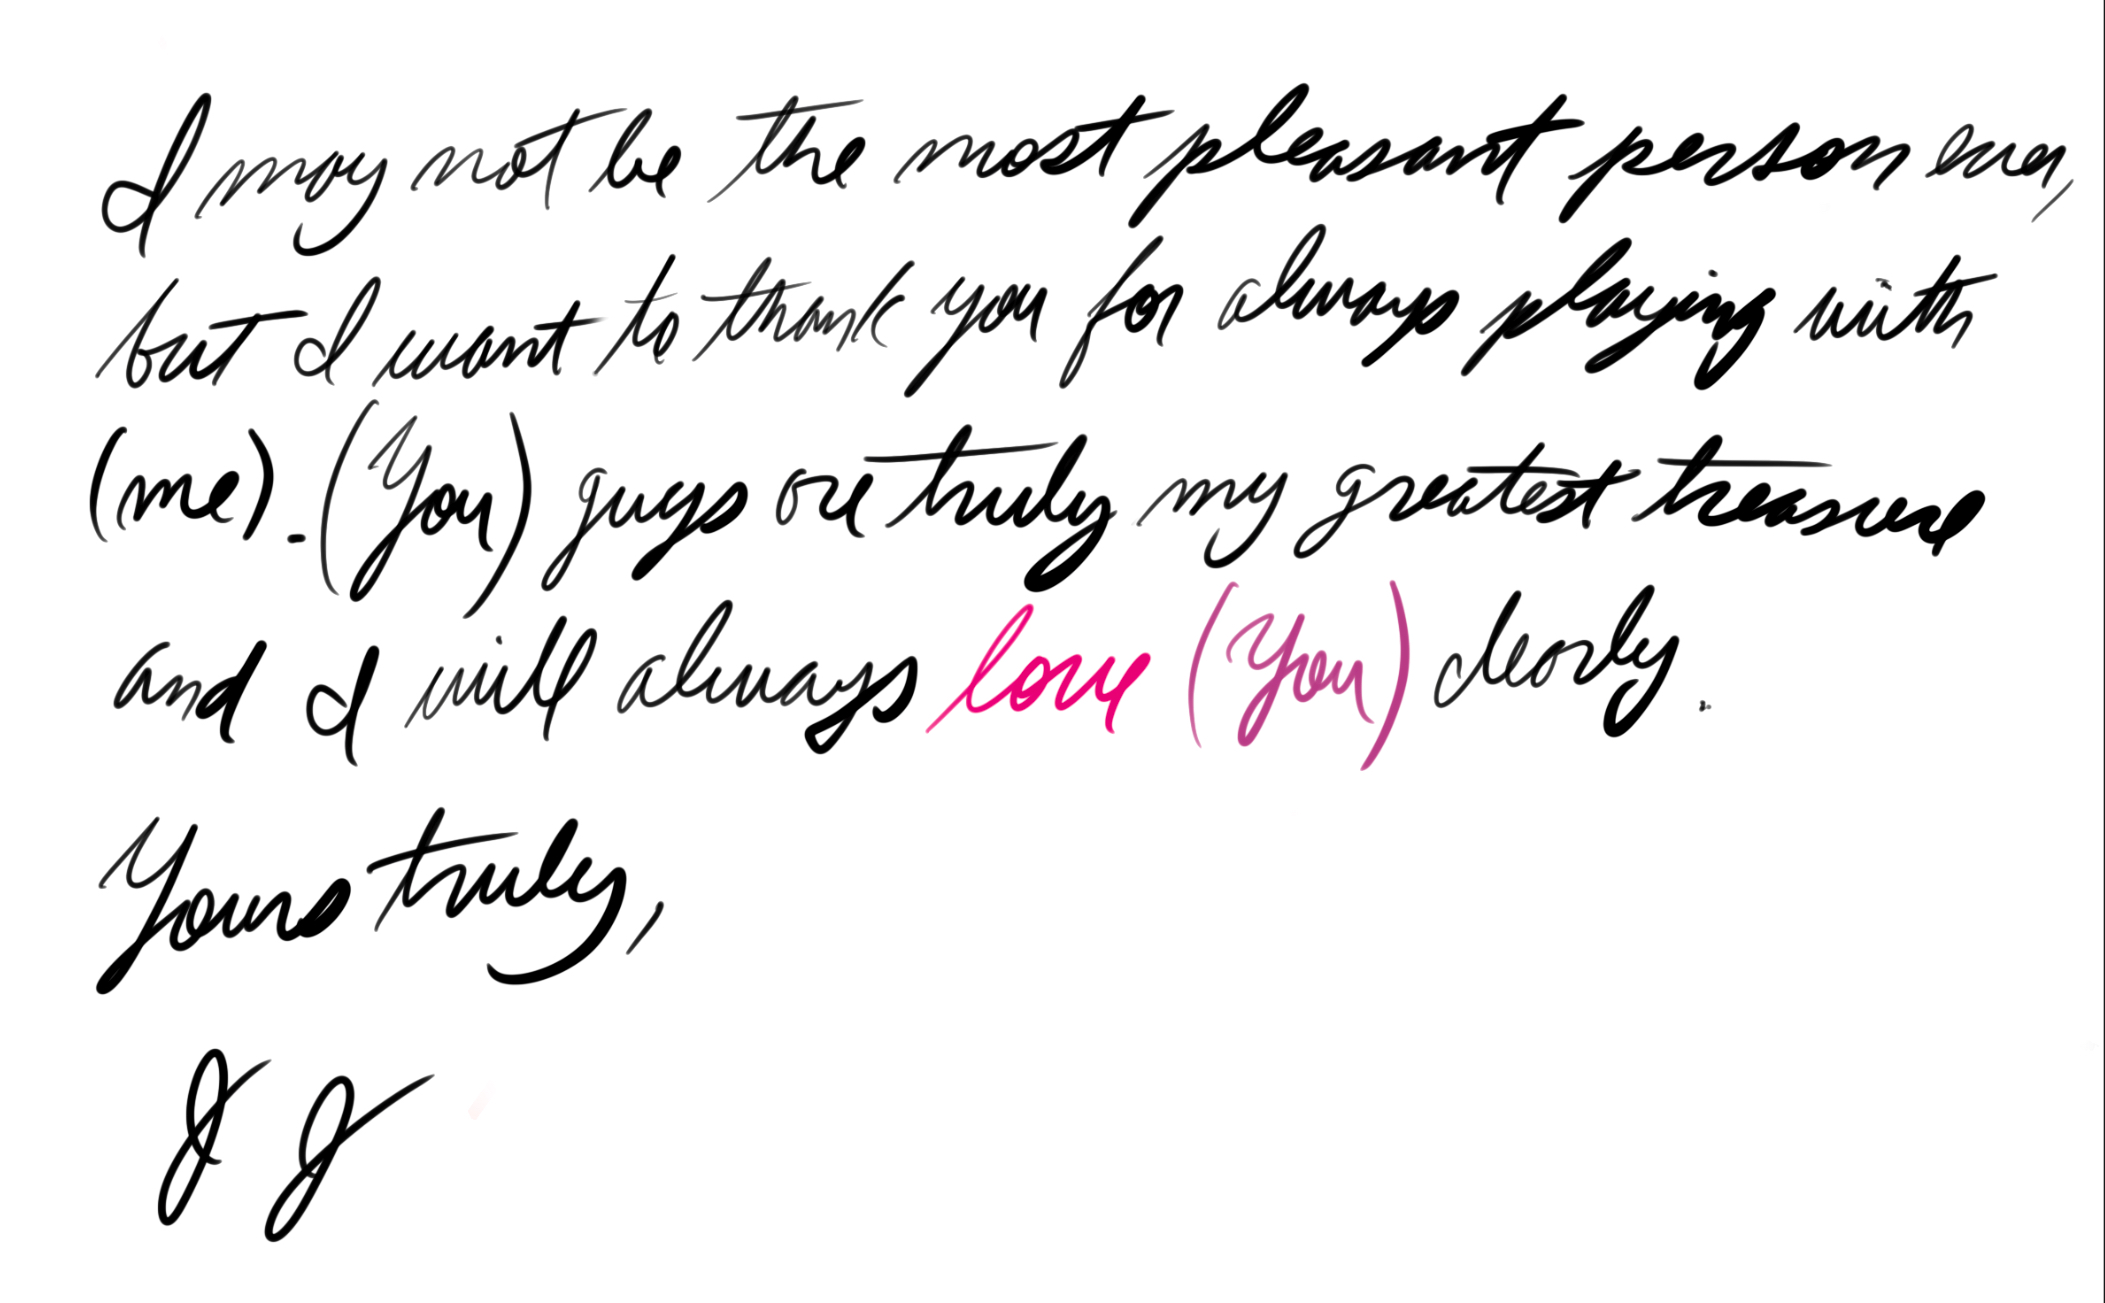 I may not be the most pleasant person ever,
but I want to thank you for always playing with
(me). (You) guys are truly my greatest treasure
and I will always love (You) dearly.
Yours truly,
JJ